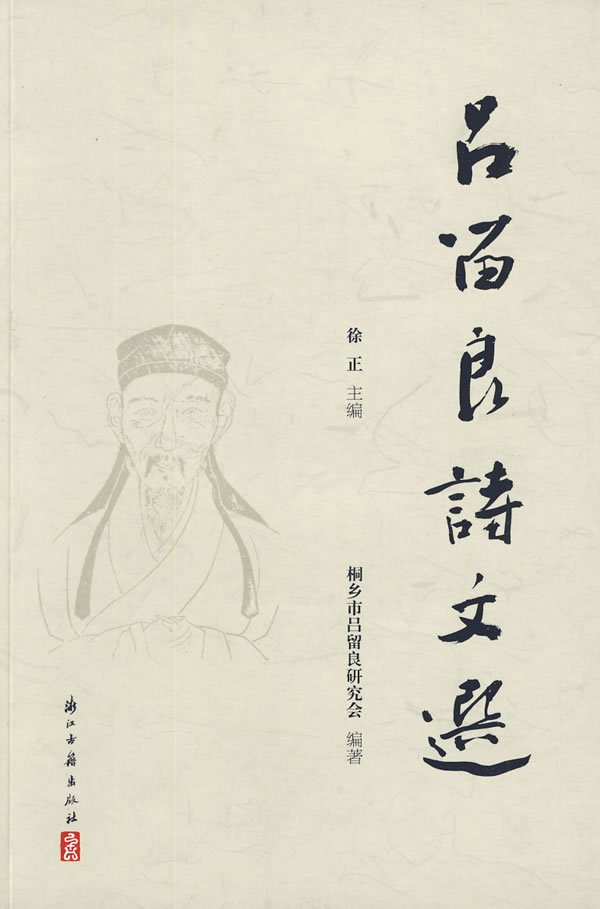 吕留良詩文選
徐正 主编
桐乡市吕留良研究会 编著
浙江古籍出版社